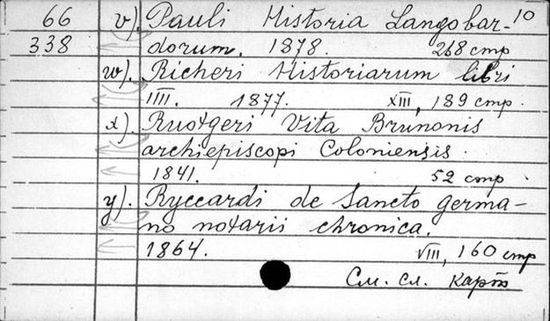 66 v). Pauli Historia Langobar- 10
338 dorum. 1878. 268 стр
w). Richeri Historiarum libri
IIII. 1877. XIII, 189 стр.
x). Ruotgeri Vita Brunonis
archiepiscopi Coloniensis.
1841. 52 стр.
y). Ryccardi de Sancto germa-
no notarii chronica.
1864. VIII, 160 стр
См. сл. карт